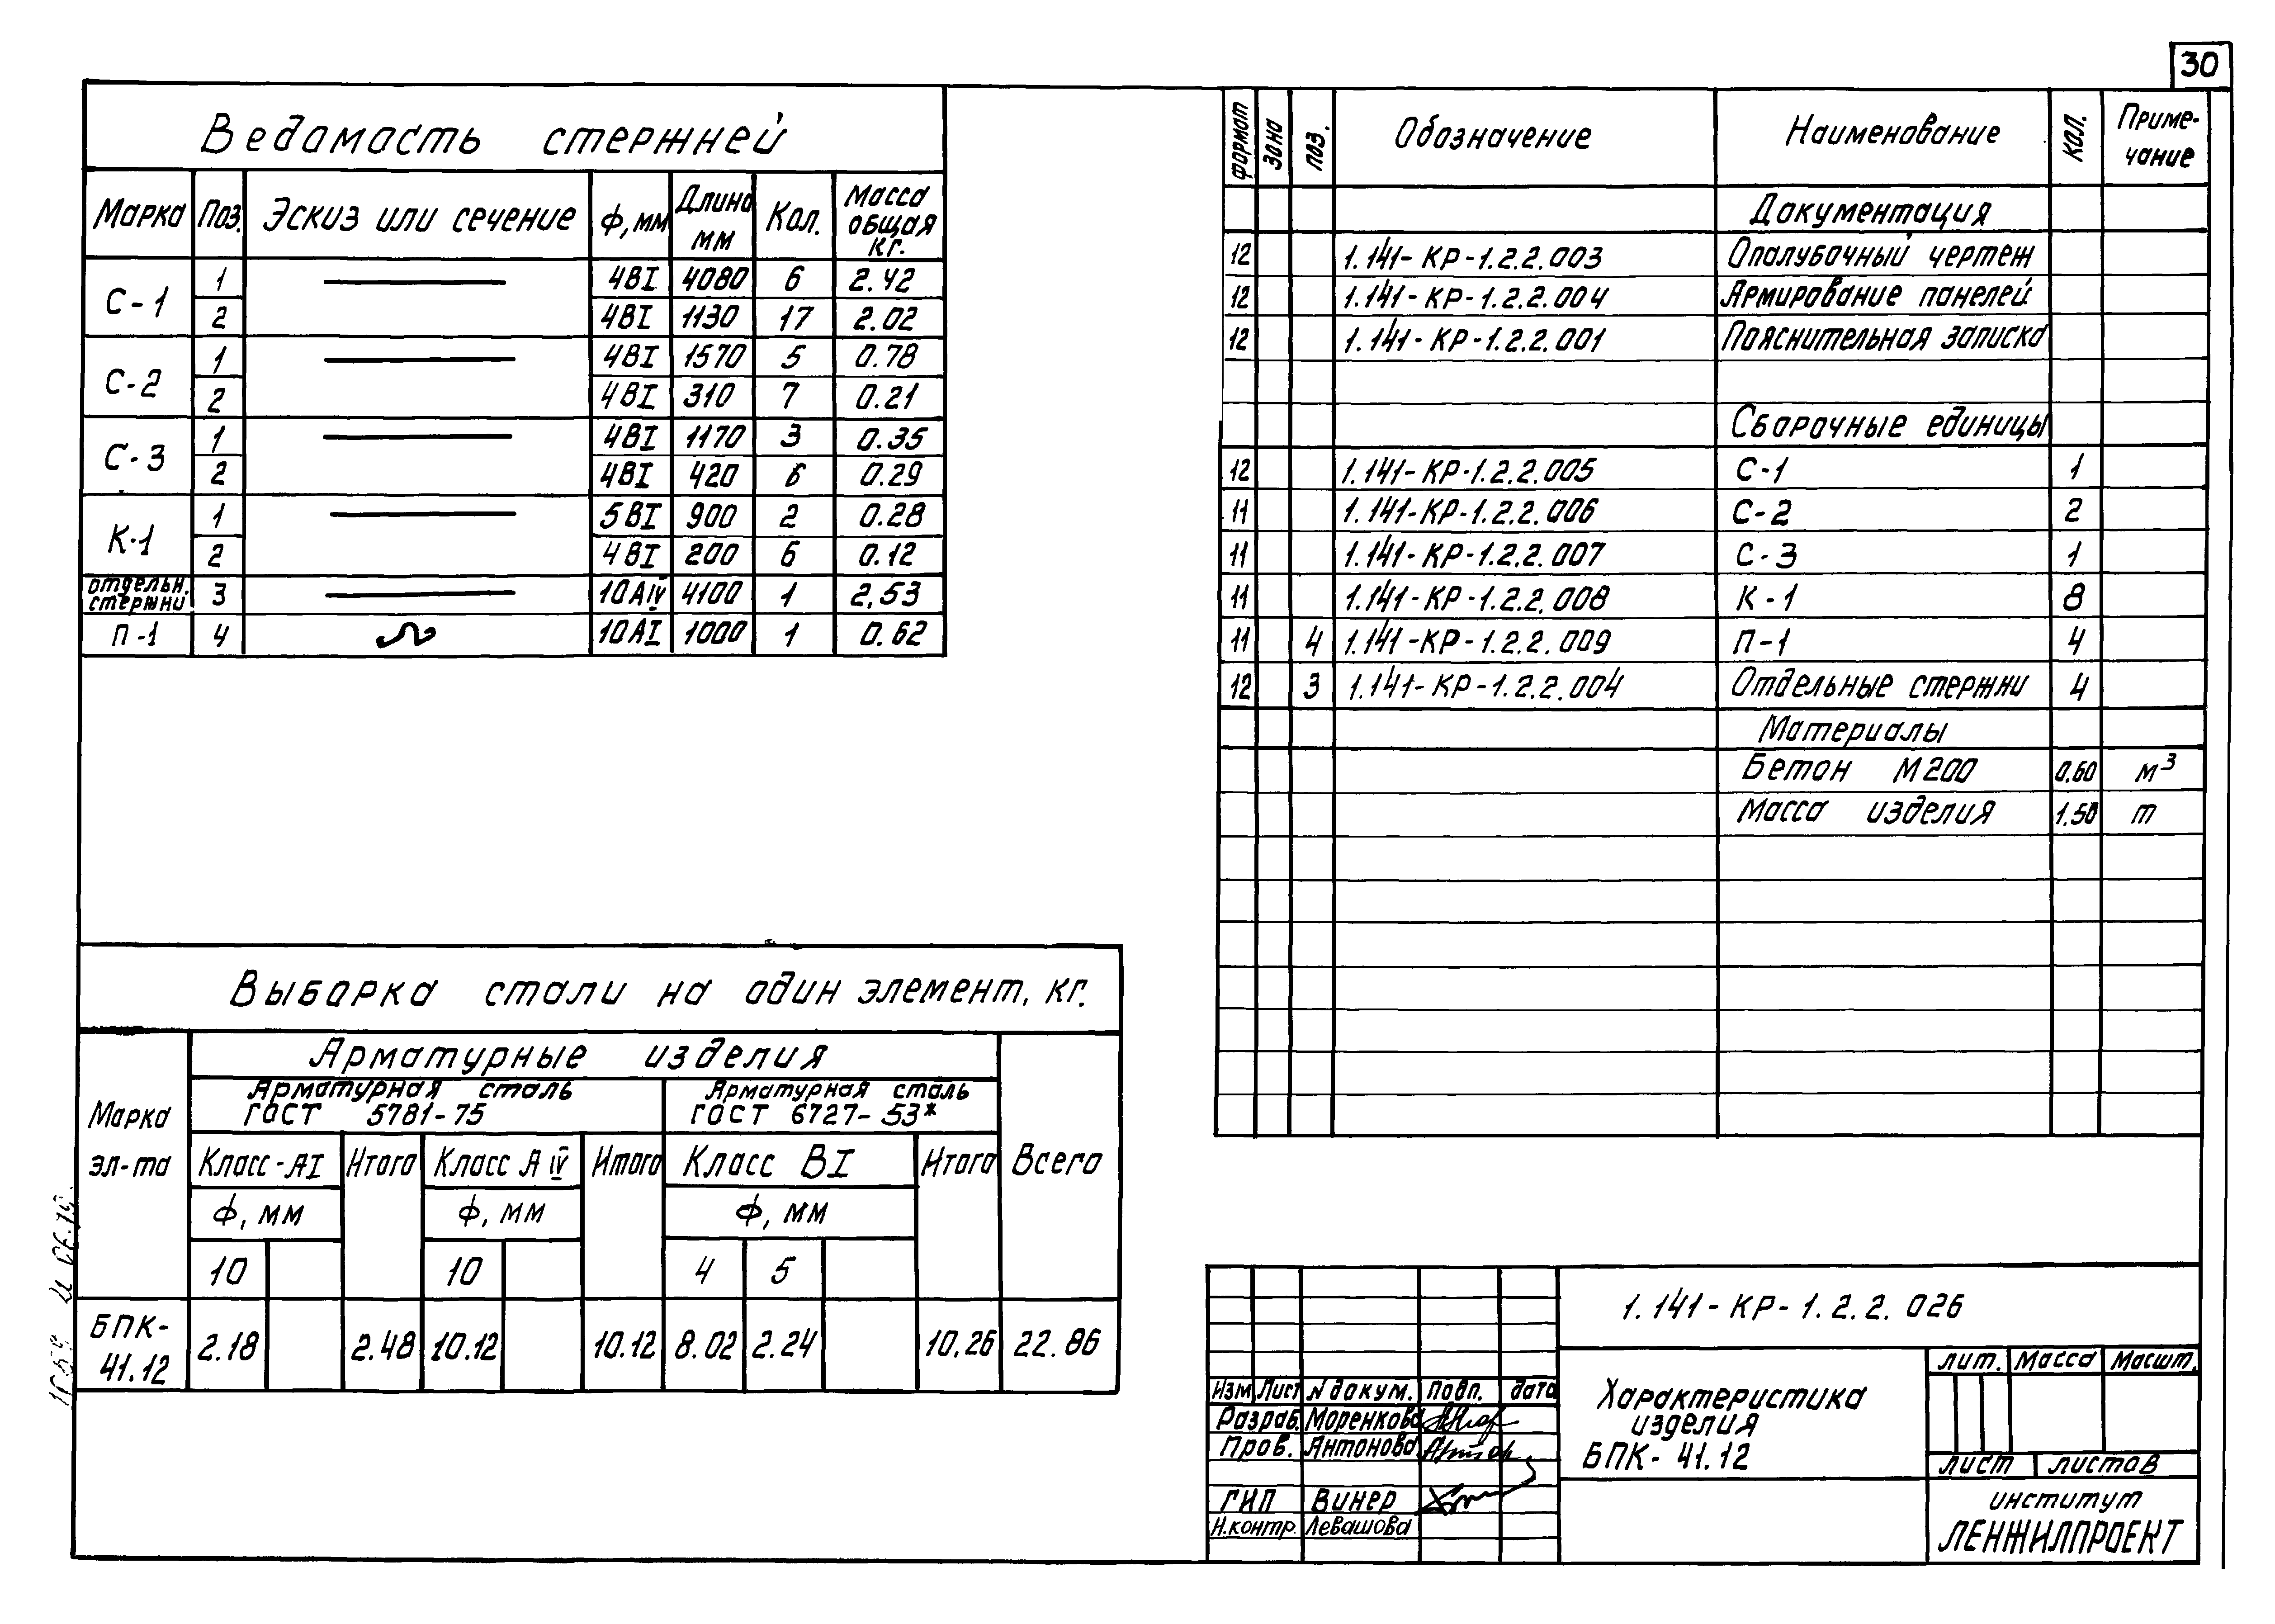 30
Ведамасть стержней
Марка Поз. Эскиз или сечение ф,мм Длина мм Кол. Масса общая кг.
С-1 1 4ВI 4080 6 2.42
2 4ВI 1130 17 2.02
С-2 1 4ВI 1570 5 0.78
2 4ВI 310 7 0.21
С-3 1 4ВI 1170 3 0.35
2 4ВI 420 6 0.29
К-1 1 5ВI 900 2 0.28
2 4ВI 200 6 0.12
отдельн. стержни 3 10АIV 4100 1 2.53
П-1 4 10АI 1000 1 0.62
Формат Зона поз. Обозначение Наименование Кол. Приме-чание
Документация
12 1.141-КР-1.2.2.003 Опалубочный чертеж
12 1.141-КР-1.2.2.004 Армирование панелей
12 1.141-КР-1.2.2.001 Пояснительная записка
Сборочные единицы
12 1.141-КР-1.2.2.005 С-1 1
11 1.141-КР-1.2.2.006 С-2 2
11 1.141-КР-1.2.2.007 С-3 1
11 1.141-КР-1.2.2.008 К-1 8
11 4 1.141-КР-1.2.2.009 П-1 4
12 3 1.141-КР-1.2.2.004 Отдельные стержни 4
Материалы
Бетон М200 0.60 м³
Масса изделия 1.50 т
Выборка стали на один элемент, кг.
Марка эл-та
Арматурные изделия
Арматурная сталь ГОСТ 5781-75
Арматурная сталь ГОСТ 6727-53*
Класс-АI Итого Класс А IV Итого Класс ВI Итого Всего
ф, мм ф, мм ф, мм
10 10 4 5
БПК-41.12 2.18 2.48 10.12 10.12 8.02 2.24 10.26 22.86
1.141-КР-1.2.2.026
Характеристика
изделия
БПК-41.12
лит. Масса Масшт.
лист листов
институт
ЛЕНЖИЛПРОЕКТ
Изм Лист N докум. Подп. дата
Разраб. Моренкова
Пров. Антонова
ГИП Винер
Н.контр. Левашова